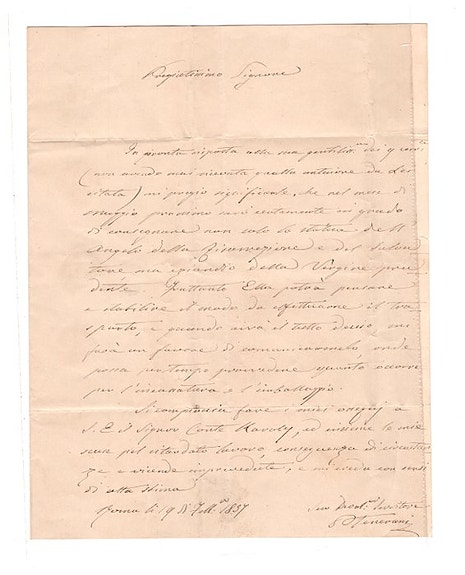 Pregiatissimo Signore
In pronta risposta alla sua gentiliss.ma dei 9 corr.te
(non avendo mai ricevuta quella anteriore da Lei
citata) mi pregio significarle, che nel mese di
Maggio prossimo sarò certamente in grado
di consegnare non solo la statua dell'
Angelo della Risurrezione e del Salva
tore ma eziandio della Vergine
Frattanto Ella potrà pensare
e stabilire il modo da effettuare il tra
sporto, e quando avrà il tutto deciso, mi
farà un favore di comunicarmelo onde
possa per tempo provvedere quanto occorre
per l'incassatura e l'imballaggio.
Si compiaccia fare i miei ossequj a
S. E. il Signor Conte Karoly, ed insieme le mie
scuse pel ritardato lavoro, conseguenza di circostan
ze e vicende imprevedute, e mi creda con sensi
di alta stima
Roma li 1837
Suo Servitore
P Tenerani